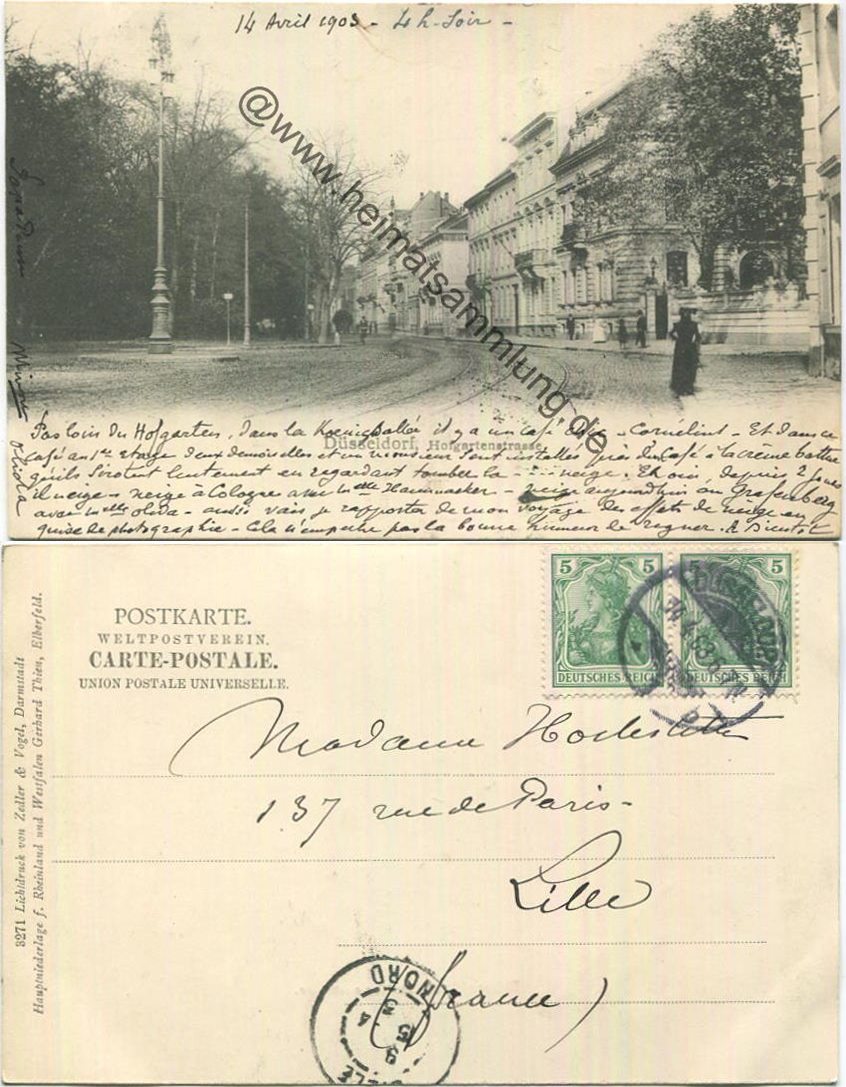 14 Avril 1903 - 4 h - Soir -
@www.heimatsammlung.de
Düsseldorf, Hofgartenstrasse.
Pas loin du Hofgarten, dans la Koenigsallée il y a un café - Cornélius - Et dans ce
café au 1er étage deux demoiselles et un monsieur sont installés près d'un café à la crème battue
qu'ils sirotent lentement en regardant tomber la - neige. Eh oui, depuis 2 jours
il neige - neige à Cologne avec Melle Hammacker - neige aujourd'hui au Grafenberg
avec Melle Oliva - aussi vais je rapporter de mon voyage des effets de neige en
guise de photographie - Cela n'empêche pas la bonne humeur de régner. A bientôt
POSTKARTE.
WELTPOSTVEREIN.
CARTE-POSTALE.
UNION POSTALE UNIVERSELLE.
5 5
DEUTSCHES REICH
5 5
DEUTSCHES REICH
DÜSSELDORF
14.4.03
Madame Hochstetter
137 rue de Paris -
Lille
(France)
LILLE
NORD
3271 Lichtdruck von Zedler & Vogel, Darmstadt
Hauptniederlage f. Rheinland und Westfalen Gerhard Thien, Elberfeld.